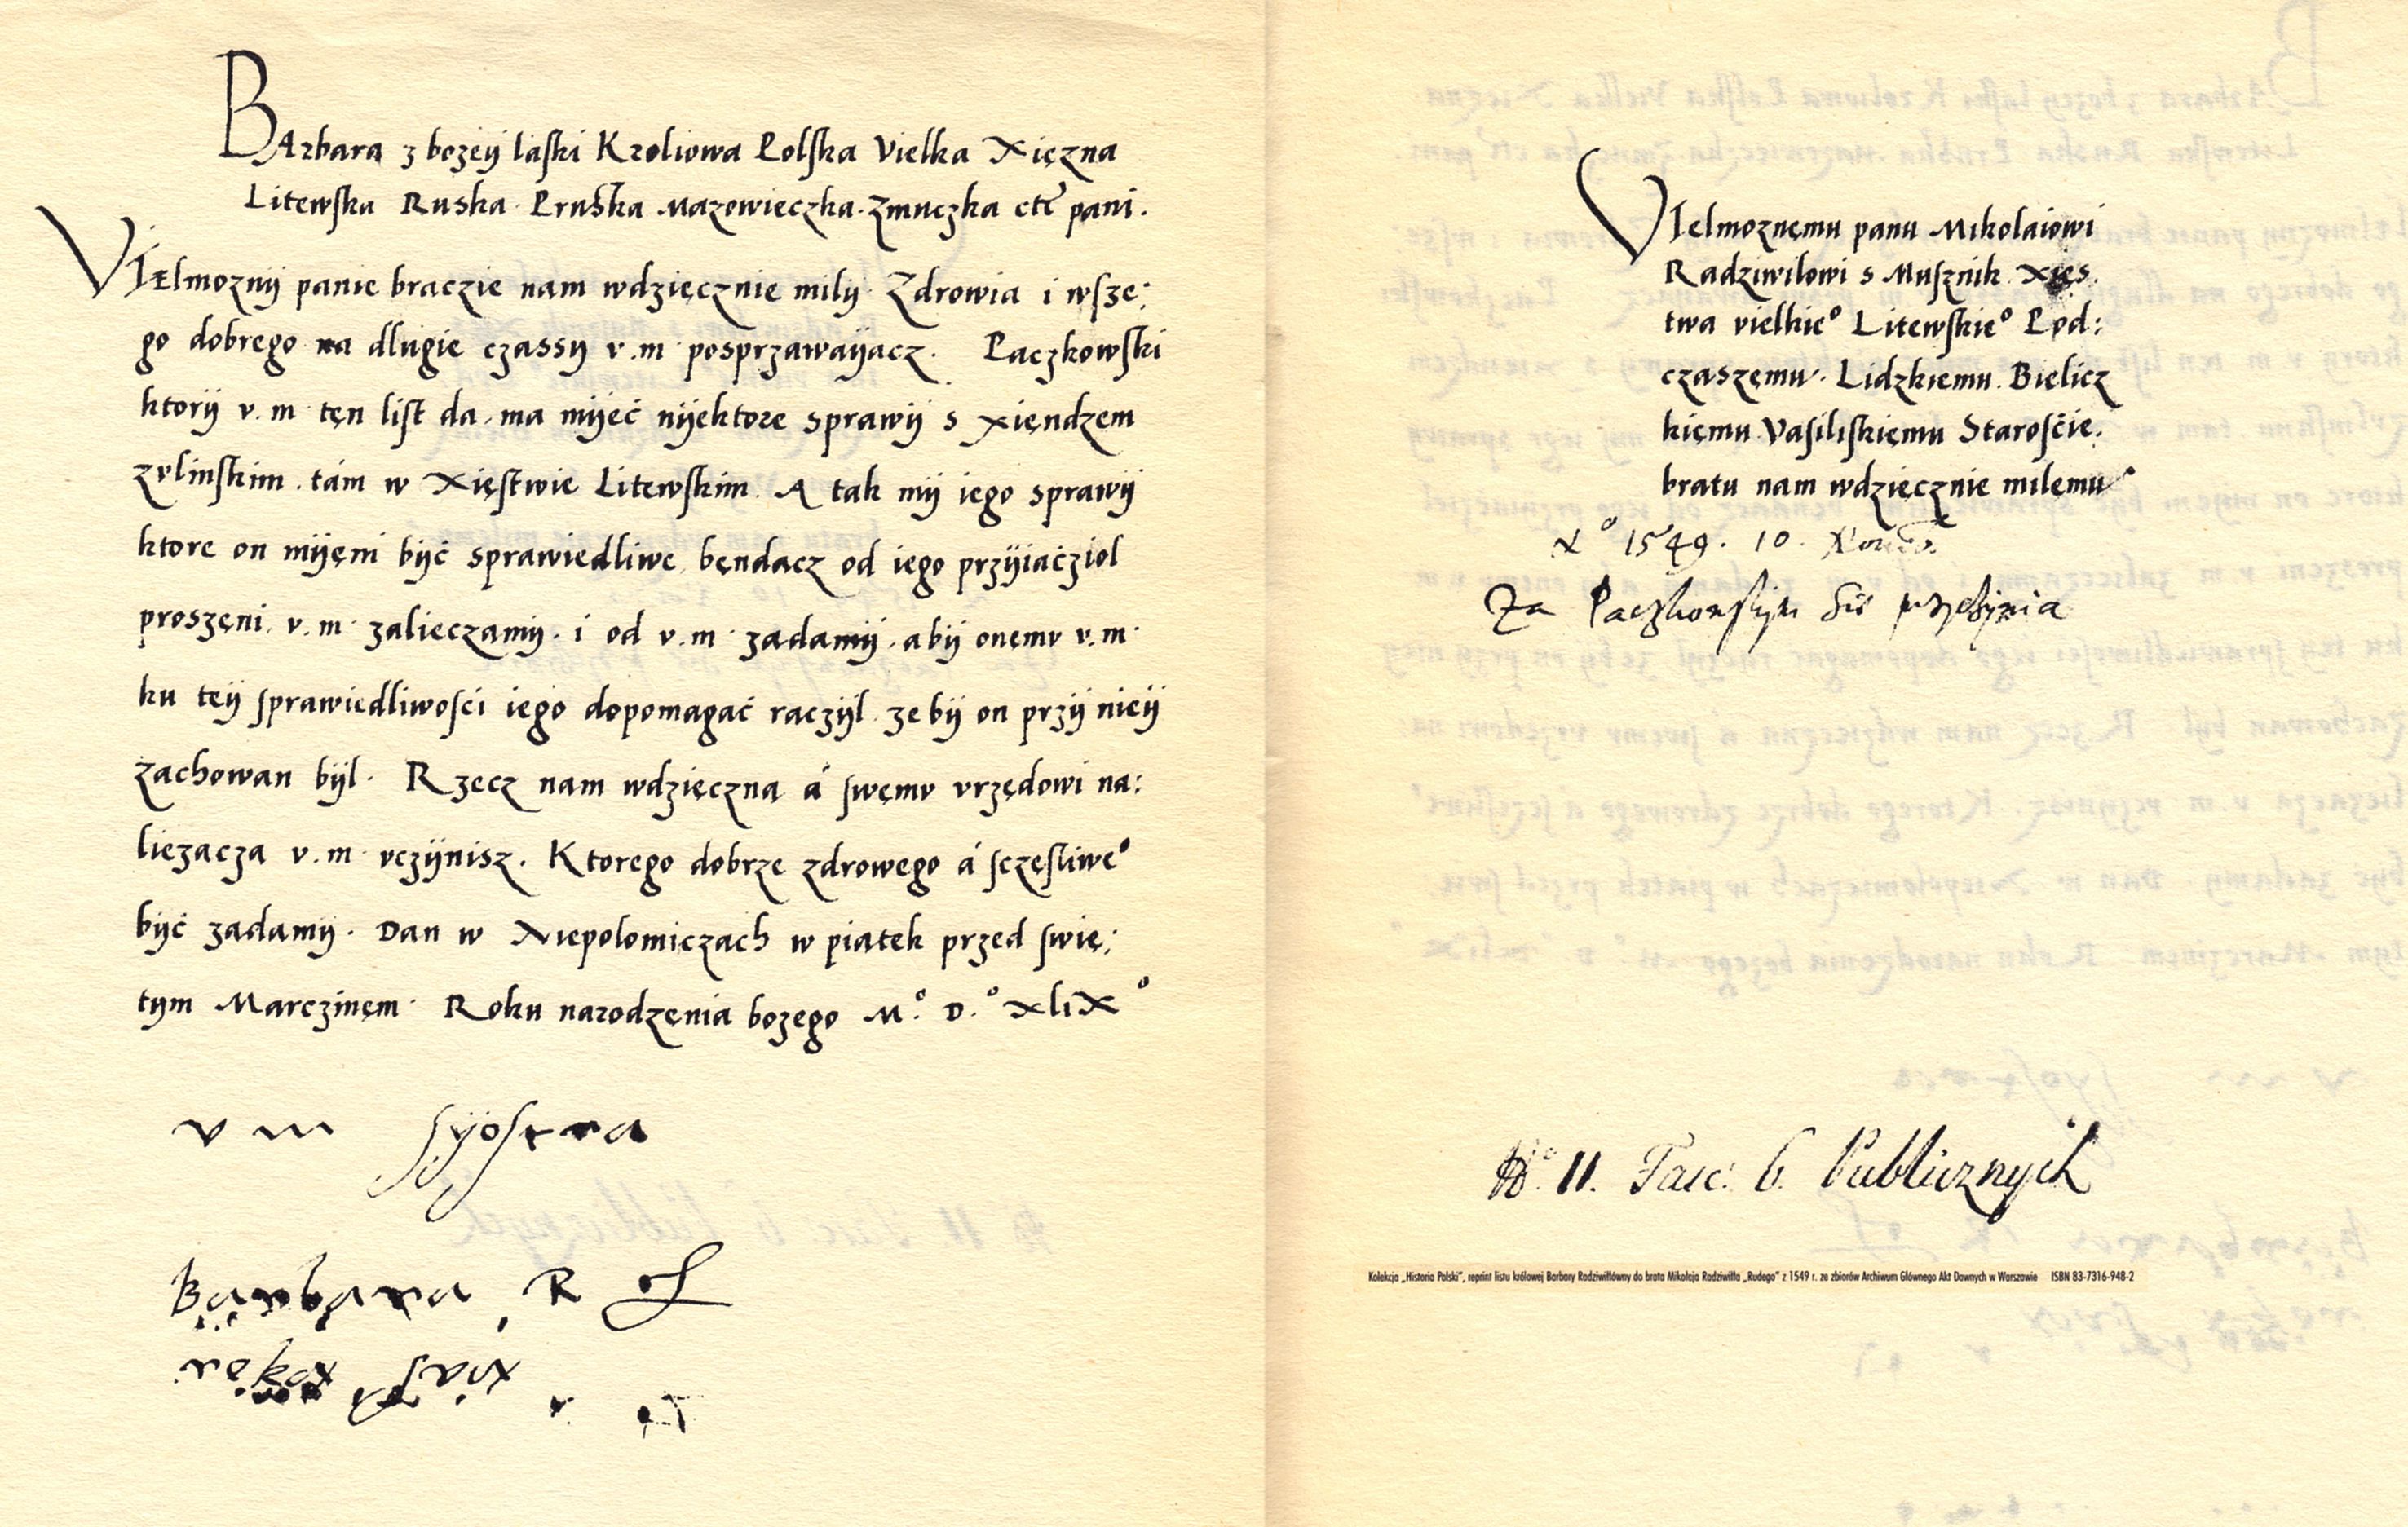 BArbara z bozéy laski Kroliowa Polska Vielka Xięzna
Litewska Ruska Pruska Mazowieczka Zmuczka etc̃ pani.
VIElmozny panie braczie nam wdzięcznie mily. Zdrowia i wsze:
go dobrego na dlugie czassy v.m. posprzawayącz. Paczkowski
ktory v.m. tęn list da, ma myeć nyektore sprawy s Xięndzem
zvlinskim. tám w Xięstwie Litewskim. A tak my iego sprawy
ktore on myęni być sprawiedliwe, bęndacz od iego przyiacziol
proszęni, v.m. zalieczamy. i od v.m. zadamy. aby onemv v.m.
ku tey sprawiedliwości iego dopomagać raczyl. zeby on przy niey
zachowan byl. Rzecz nam wdzięczną á swęmv vrzędowi na:
liezacza v.m. vczynisz. Ktorego dobrze zdrowego á sczęsliwe°
być zadamy. Dan w Niepolomiczach w piatek przed swię:
tym Marczinęm. Roku narodzęnia bozego M.° D.° XLIX°
v m syostra
Barbara, R
VIelmoznęmu panu Mikolaiowi
Radziwilowi s Musznik. Xięs
twa vielkie° Litewskie° Pod:
czaszęmu. Lidzkięmu. Bielicz
kięmu Vasiliskięmu Starosćie.
bratu nam wdzięcznie milęmu
A° 1549. 10.
Za Paczkowskym Sie przyczynia
N° 11. Fasc. 6. Publicznych
Kolekcja „Historia Polski”, reprint listu królowej Barbary Radziwiłłówny do brata Mikołaja Radziwiłła „Rudego” z 1549 r. ze zbiorów Archiwum Głównego Akt Dawnych w Warszawie ISBN 83-7316-948-2